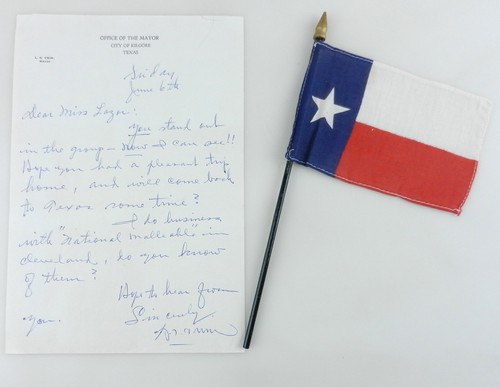 OFFICE OF THE MAYOR
CITY OF KILGORE
TEXAS
Mayor
Friday
June 6th
Dear Miss Lazar:
You stand out
in the group - now I can see!!
Hope you had a pleasant trip
home, and will come back
to Texas some time?
I do business
with "National Malleable" in
Cleveland, do you know
of them?
Hope to hear from
you.
Sincerely